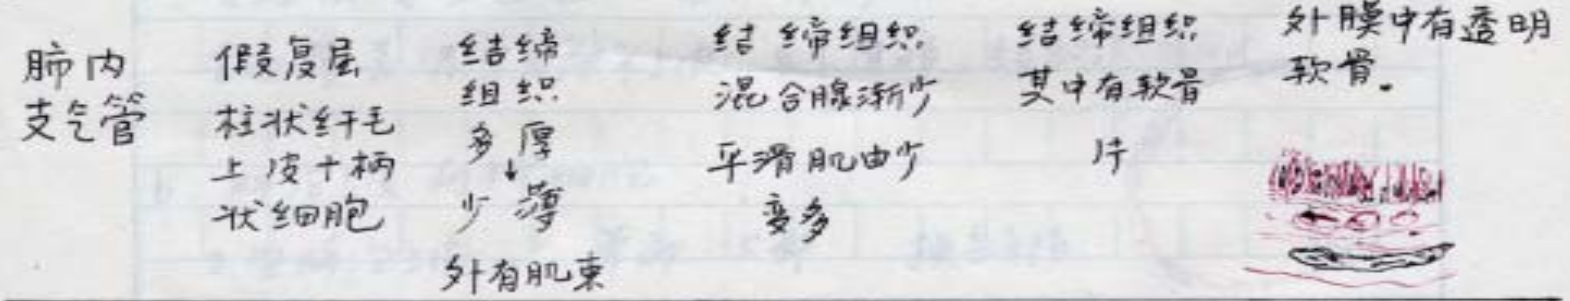 肺内
支气管
假复层
柱状纤毛
上皮+柄
状细胞
结缔
组织
多 厚
↓
少 薄
外有肌束
结缔组织
混合腺渐少
平滑肌由少
变多
结缔组织
其中有软骨
片
外膜中有透明
软骨。